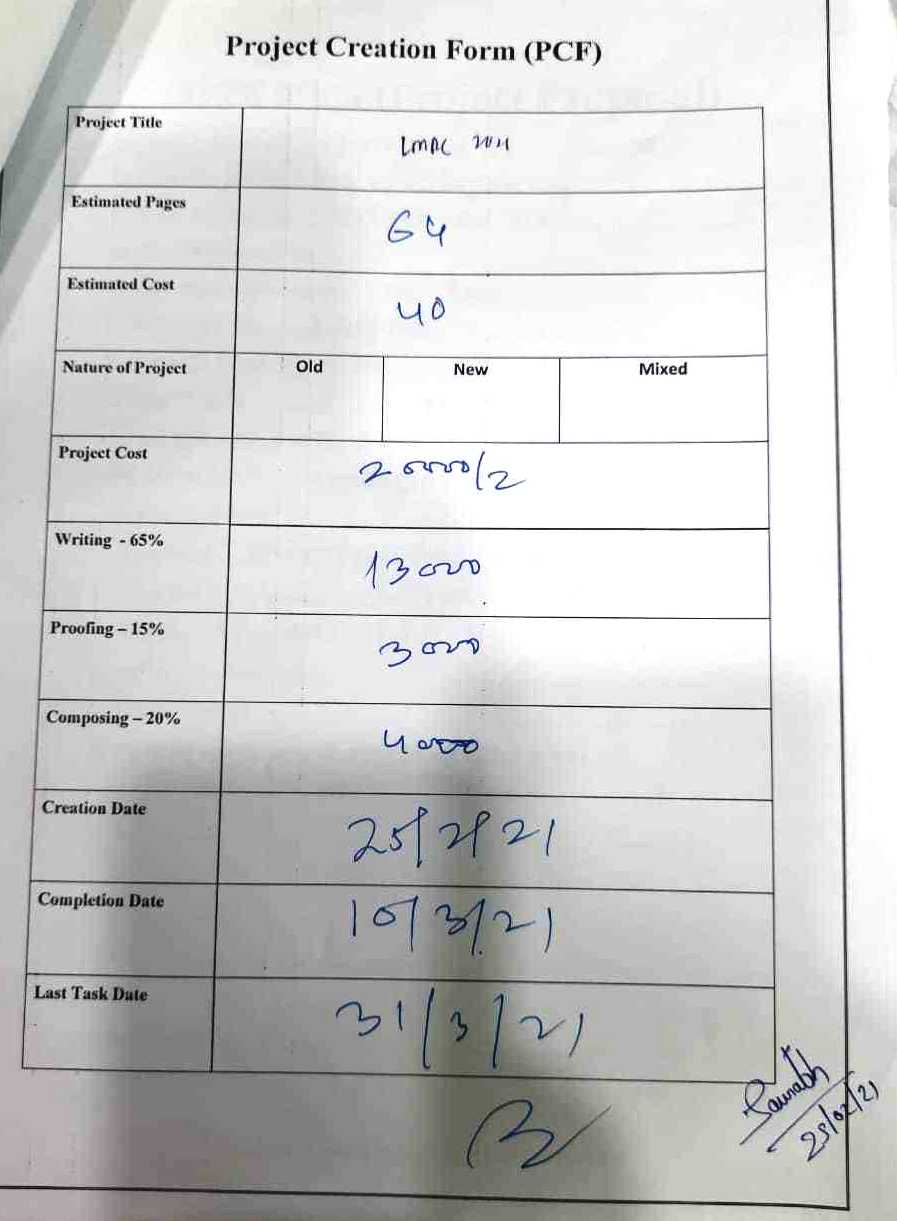 Project Creation Form (PCF)
Project Title
LMRC 2021
Estimated Pages
64
Estimated Cost
40
Nature of Project Old New Mixed
Project Cost
20000/2
Writing - 65%
13000
Proofing – 15%
3000
Composing – 20%
4000
Creation Date
25/2/21
Completion Date
10/3/21
Last Task Date
31/3/21
Saurabh
25/02/21